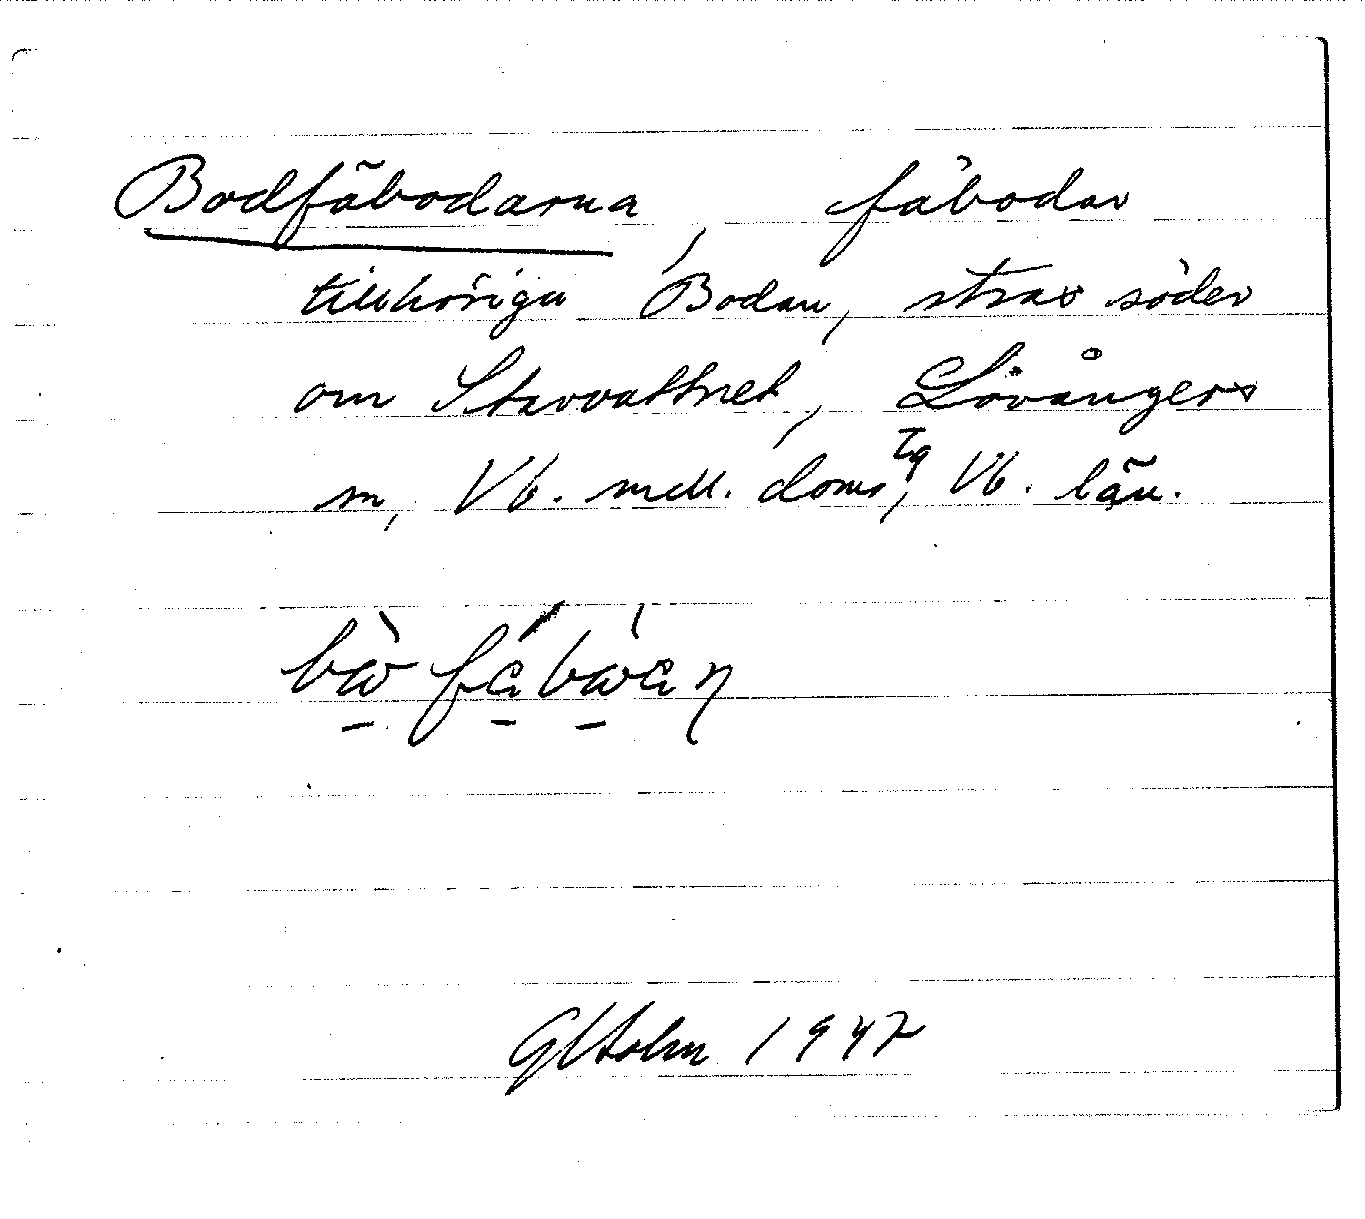 Bodfäbodarna, fäbodar
tillhöriga Bodan, strax söder
om Stavvattnet, Lövångers
sn, Vb. mell. doms tg, Vb. län.
GHolm 1947